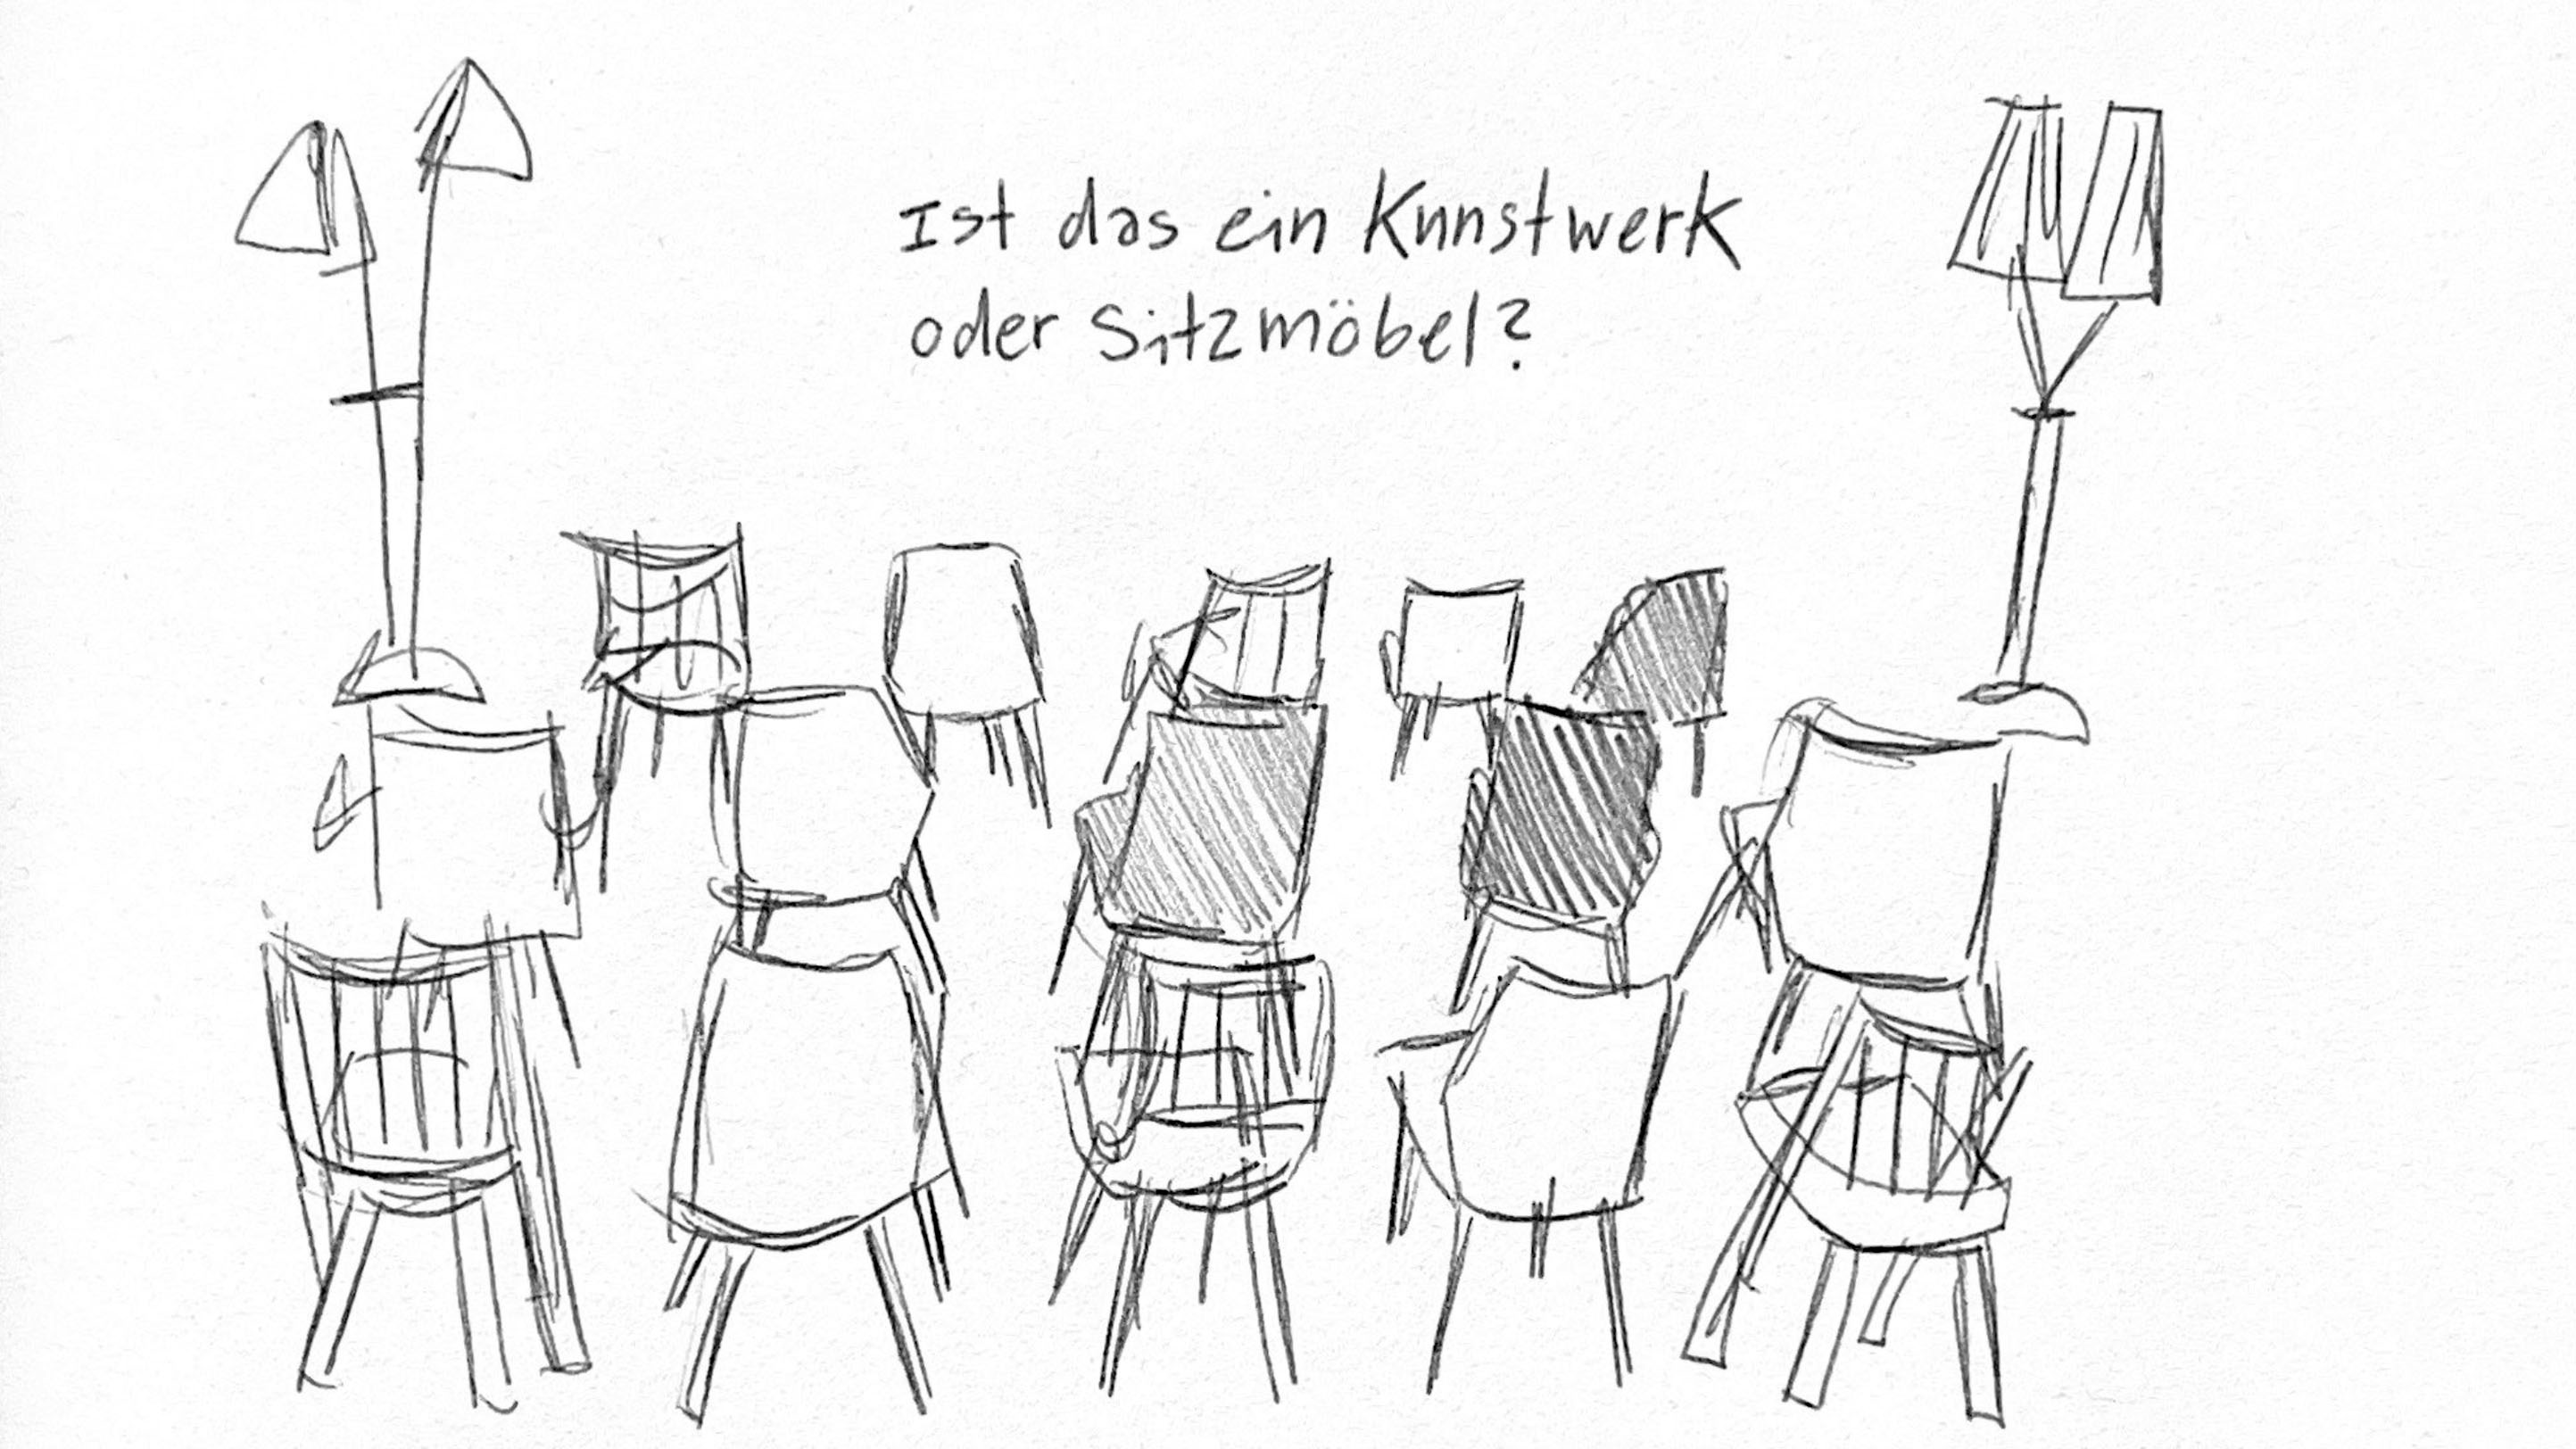 Ist das ein Kunstwerk
oder Sitzmöbel?